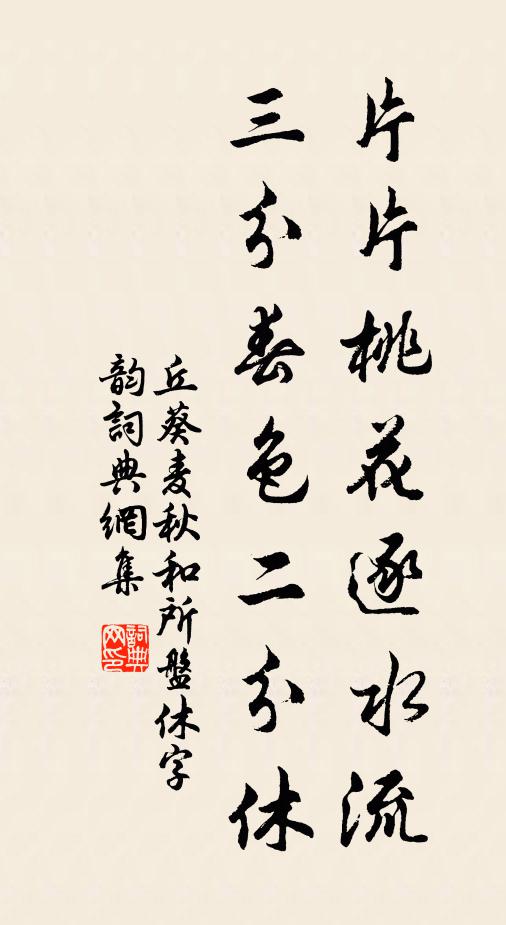 片片桃花逐水流
三分春色二分休
丘葵麦秋和所盤休字
韵詞典網集
詞典网印